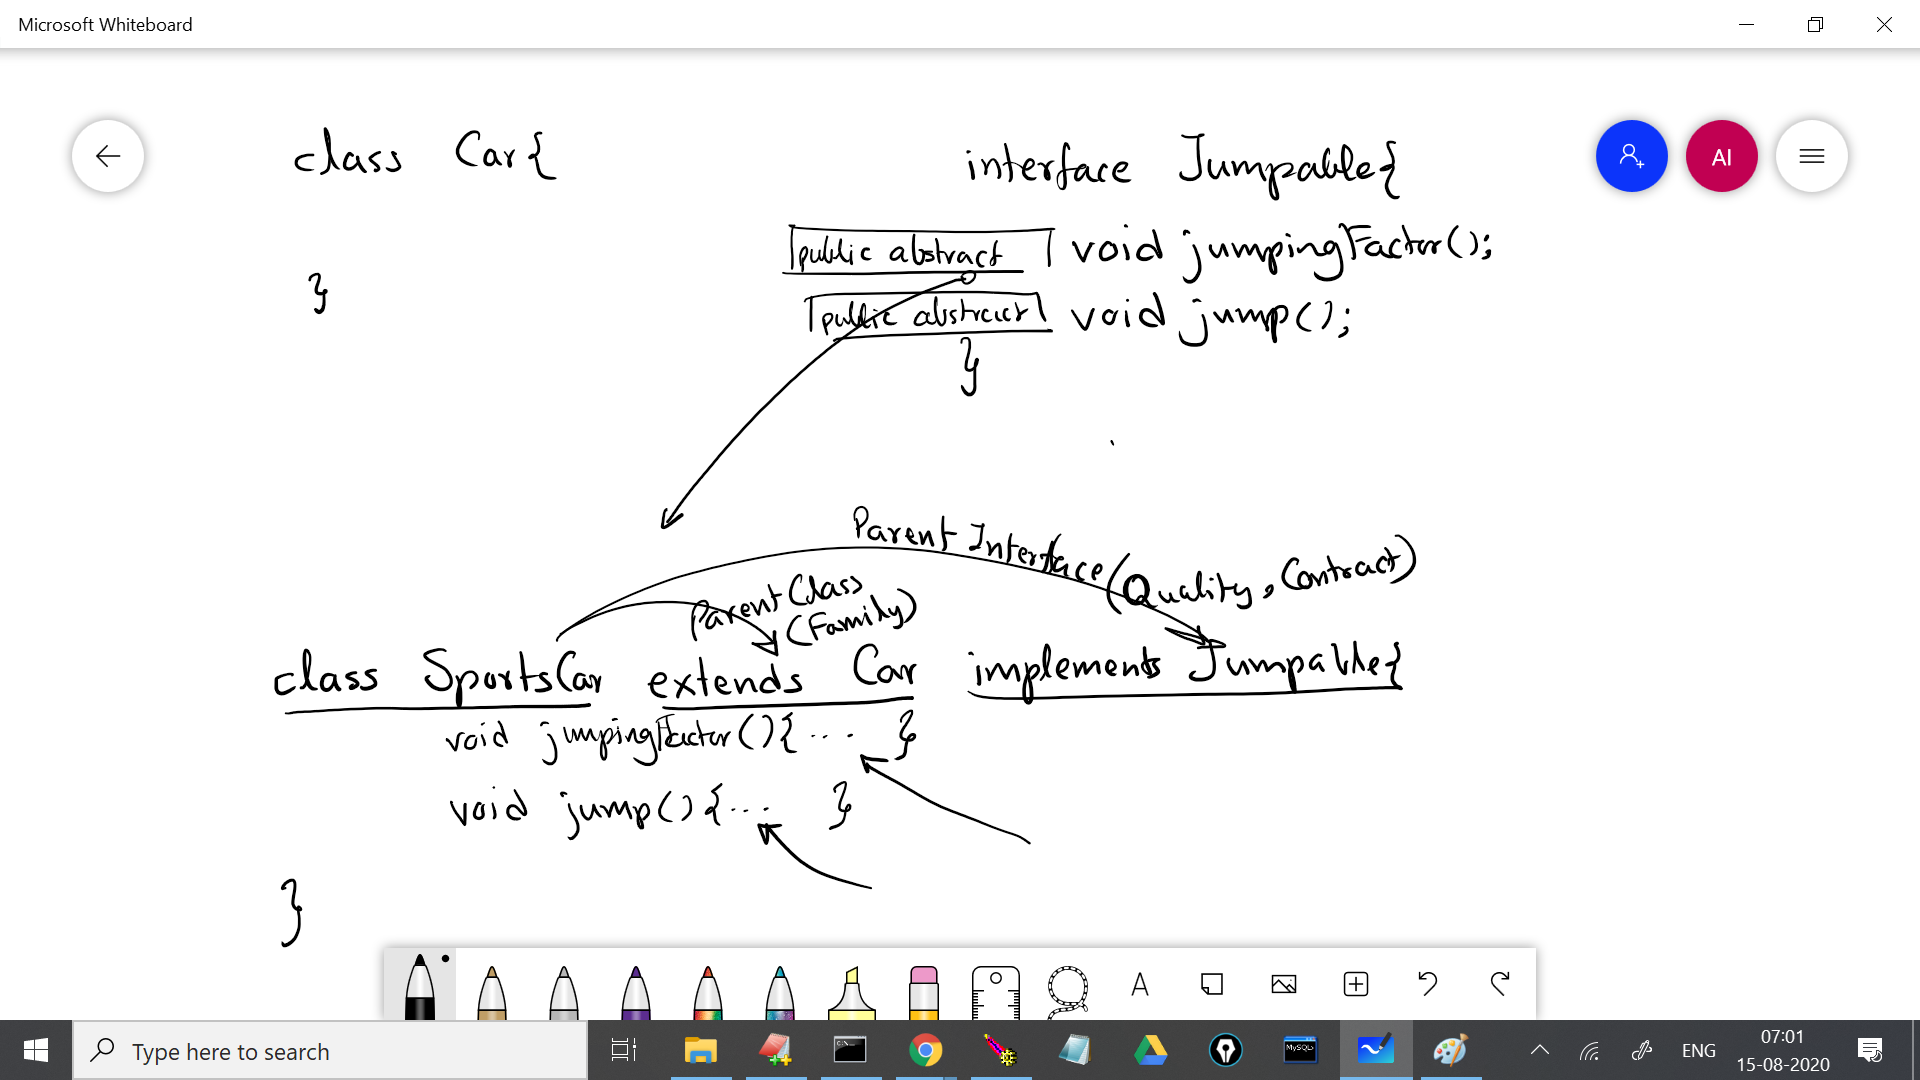 Microsoft Whiteboard
class Car{
}
interface Jumpable{
public abstract void jumpingFactor();
public abstract void jump();
}
AI
Parent Interface (Quality, Contract)
Parent Class
(Family)
class SportsCar extends Car implements Jumpable{
void jumpingFactor(){ ... }
void jump(){ ... }
}
A
Type here to search
MySQL
ENG
07:01
15-08-2020